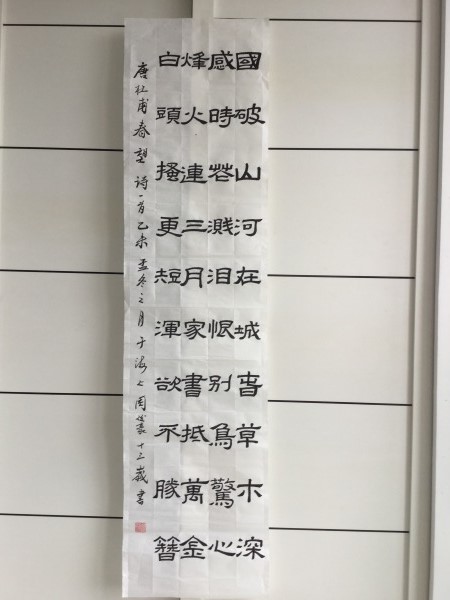 國破山河在城春草木深
感時花濺淚恨別鳥驚心
烽火連三月家書抵萬金
白頭搔更短渾欲不勝簪
唐杜甫春望詩一首乙未孟冬之月于海上周 十三歲書